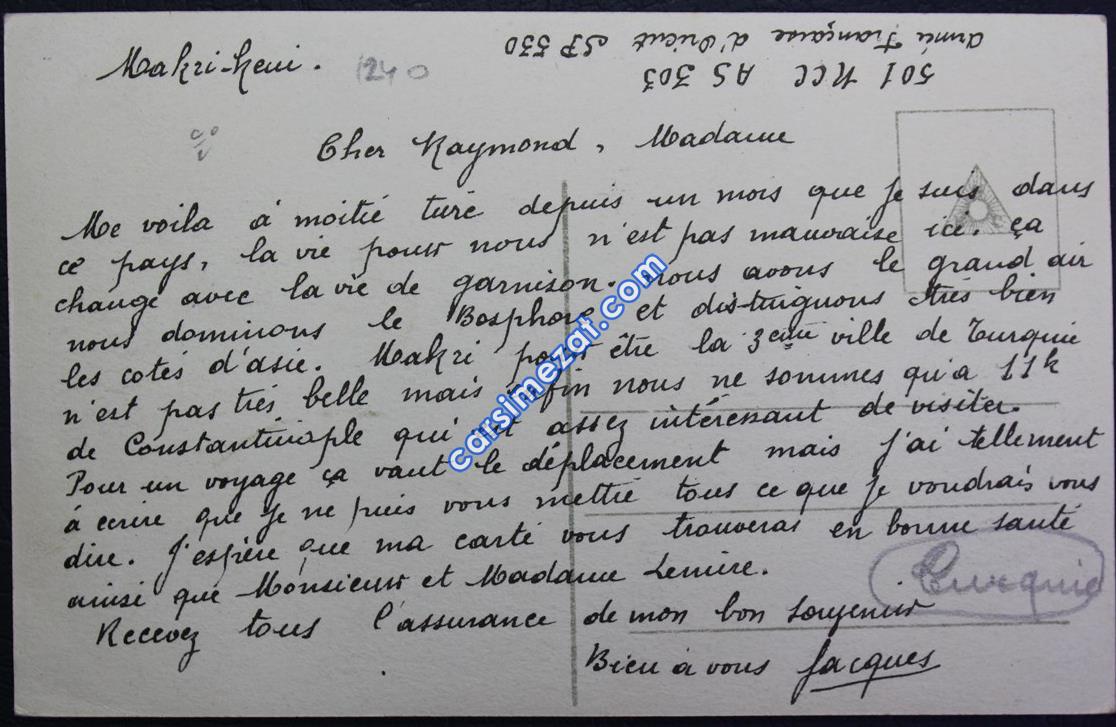 Makri-Keui.
1240
501 RCC AS 303
Armée Française d'Orient SP 530
Cher Raymond, Madame
Me voila á moitié turc depuis un mois que je suis dans
ce pays, la vie pour nous n'est pas mauvaise ici. ça
change avec la vie de garnison. nous avons le grand air
nous dominons le Bosphore et distinguons très bien
les cotés d'asie. Makri pour être la 3eme ville de Turquie
n'est pas très belle mais enfin nous ne sommes qu'a 11k
de Constantinople qui est assez intéressant de visiter.
Pour un voyage ça vaut le déplacement mais j'ai tellement
á ecrire que je ne puis vous mettre tous ce que je voudrais vous
dire. J'espère que ma carte vous trouveras en bonne santé
ainsi que Monsieur et Madame Lemire.
Recevez tous l'assurance de mon bon souvenir
Bien á vous Jacques
Turquie
carsimezat.com